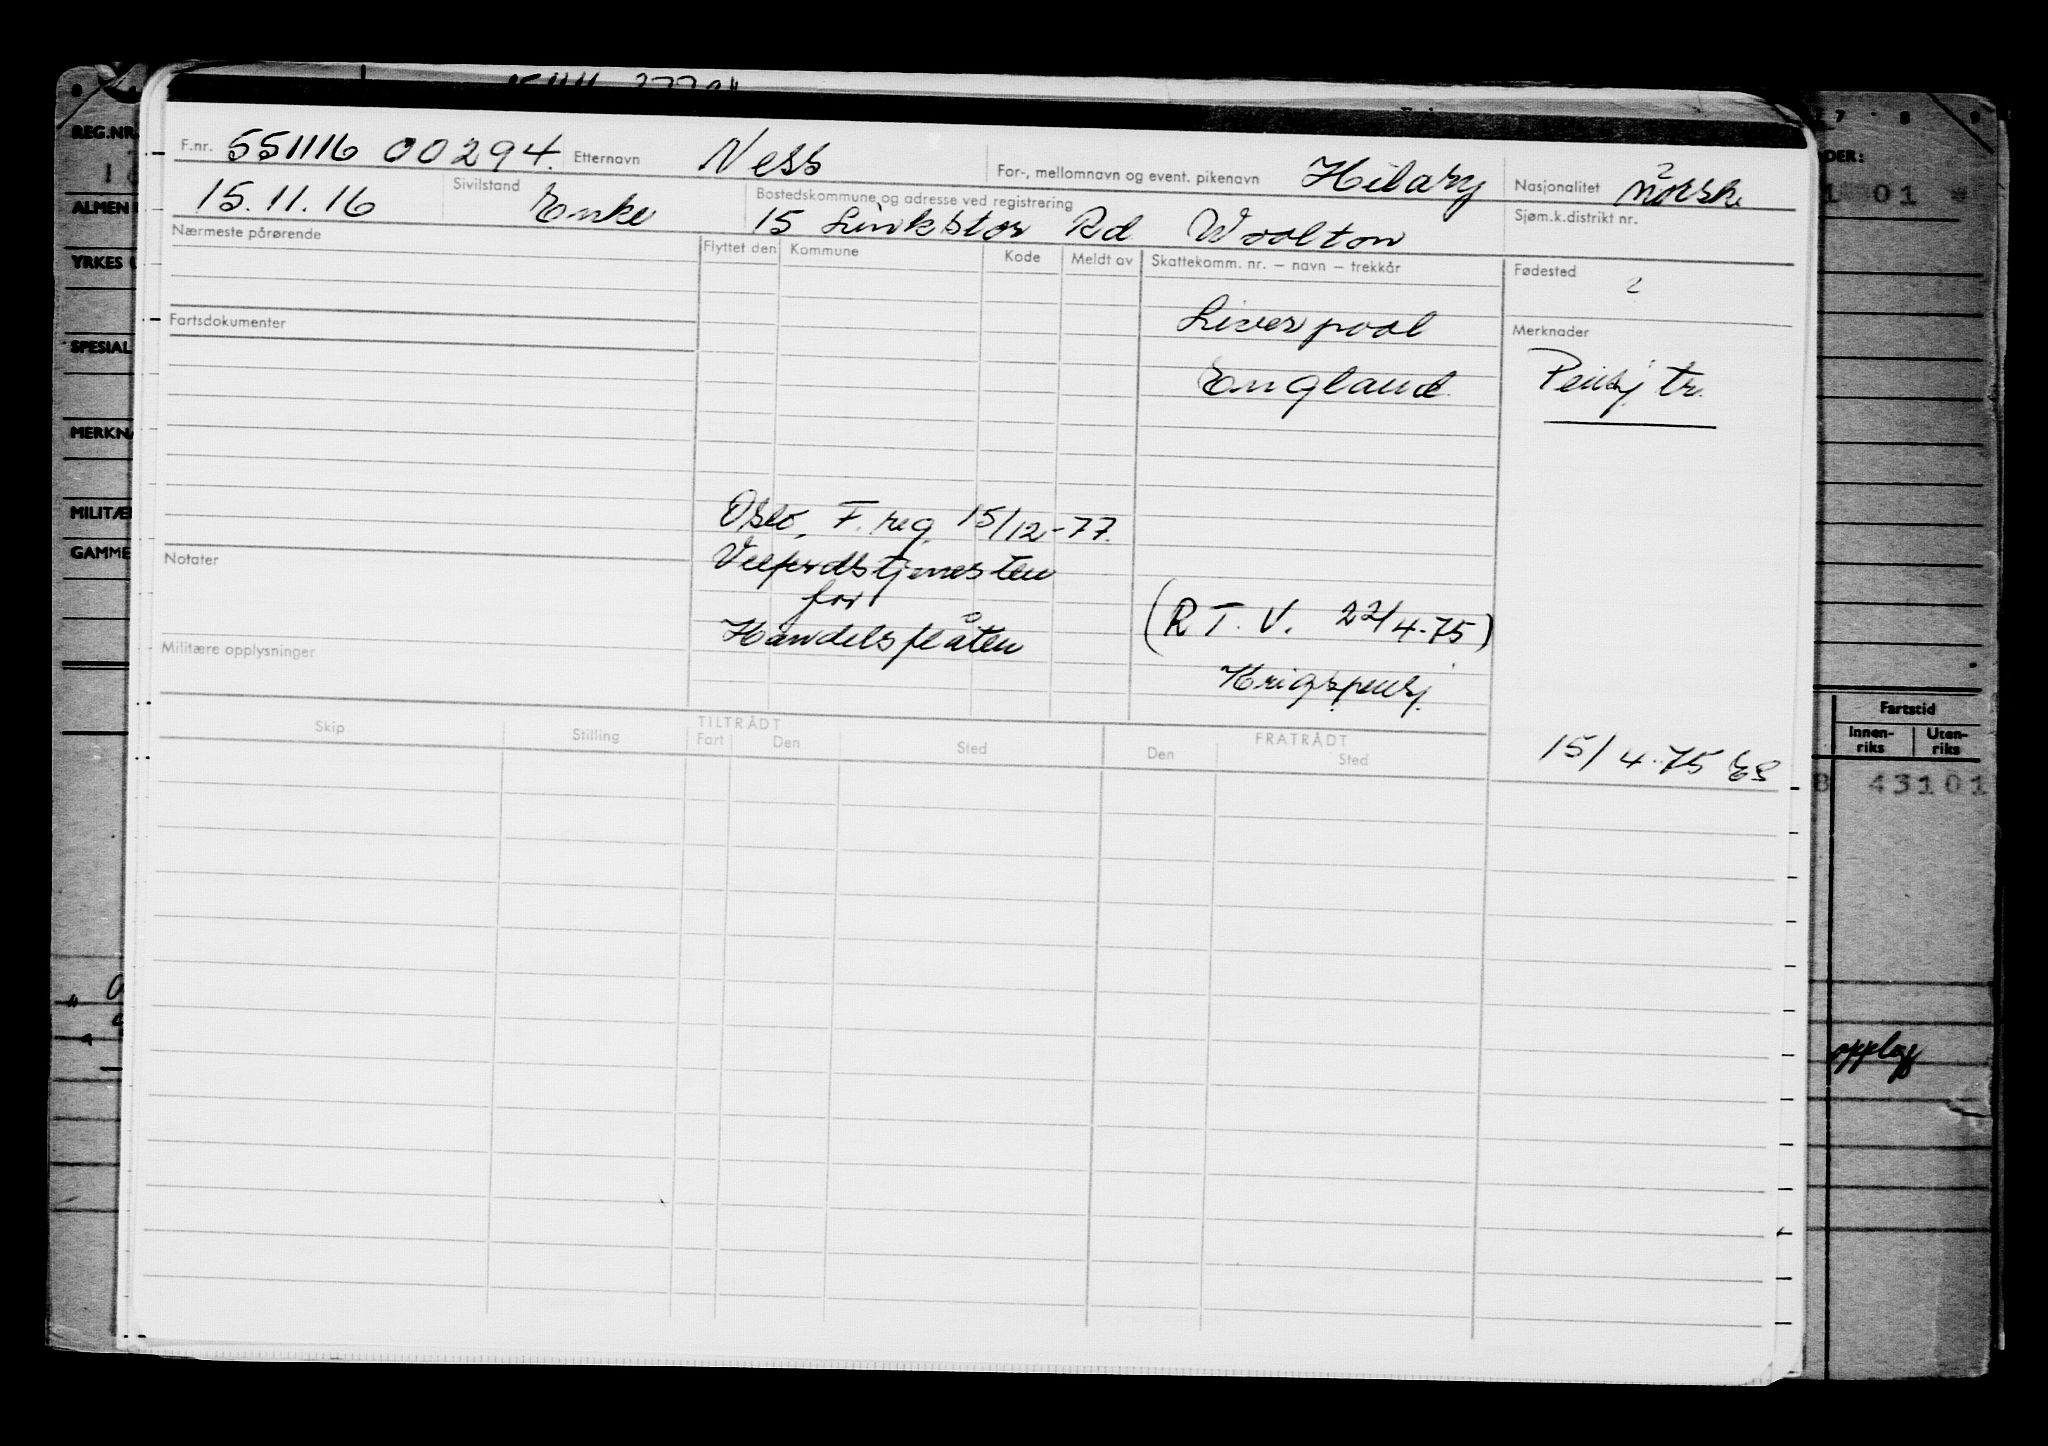 F.nr. 551116 00294. Etternavn Ness For-, mellomnavn og event. pikenavn Hilary Nasjonalitet ? norsk.
15.11.16 Sivilstand Enke Bostedskommune og adresse ved registrering 15 Linkstor Rd Woolton Sjøm.k.distrikt nr.
Nærmeste pårørende Flyttet den Kommune Kode Meldt av Skattekomm. nr. – navn – trekkår Fødested ?
Liverpool
Fartsdokumenter Merknader
England. Pensj. tr.
Oslo, F. reg. 15/12-77.
Velferdstjenesten
Notater
for
(R T. V. 22/4-75)
Handelsflåten
Militære opplysninger
Krigspensj.
Skip Stilling TILTRÅDT Fart Den Sted FRATRÅDT Den Sted
15/4-75 ES
REG.NR.
ALMEN
YRKES
SPESIAL
MERKNA
MILITÆR
GAMME
DER:
1 01 *
7 8 9
Fartstid
Innen-
riks
Uten-
riks
B 43101
opplag